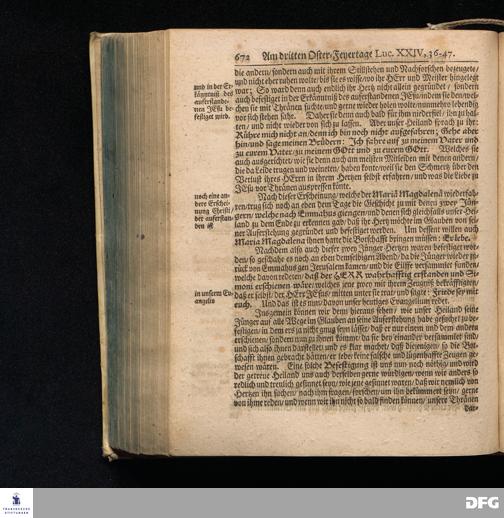 672 Am dritten Oster-Feyertage Luc. XXIV, 36-47.
die andern/ sondern auch mit ihrem Stillstehen und Nachforschen bezeugete/
und nicht eher ruhen wolte/ bis sie es wisse/ wo ihr HErr und Meister hingelegt
war; So ward denn auch endlich ihr Hertz nicht allein gegründet/ sondern
auch befestiget in der Erkäntniß des auferstandenen JEsu/ indem sie den
chen sie mit Thränen suchte/ und gerne wieder holen wolte/ nunmehro lebendig
vor sich stehen sahe. Daher sie denn auch bald für ihm niederfiel/ ihn zu hal-
ten/ und nicht wieder von sich zu lassen. Aber unser Heiland sprach zu ihr:
Rühre mich nicht an/ denn ich bin noch nicht aufgefahren; Gehe aber
hin/ und sage meinen Brüdern: Ich fahre auf zu meinem Vater und
zu eurem Vater/ zu meinem GOtt und zu eurem GOtt. Welches sie
auch ausgerichtet/ wie sie denn auch am meisten Mitleiden mit denen andern/
die da Leide trugen und weineten/ haben konte/ weil sie den Schmertz über den
Verlust ihres HErrn in ihrem Hertzen selbst erfahren/ und was die Liebe zu
JEsu vor Thränen auspressen könte.
und in der Er-
käntniß des
auferstande-
nen JEsu be-
festiget wird.
Nach dieser Erscheinung/ welche der Mariä Magdalenä wiederfah-
ren/ trug sich noch an eben dem Tage die Geschicht zu mit denen zween Jün-
gern/ welche nach Emmahus giengen/ und denen sich gleichfalls unser Hei-
land zu dem Ende zu erkennen gab/ daß ihr Hertz möchte im Glauben von sei-
ner Auferstehung gegründet und befestiget werden. Um dessent willen auch
Maria Magdalena ihnen hatte die Bothschafft bringen müssen: Er lebe.
noch eine an-
dere Erschei-
nung Christi/
der auferstan-
den ist
Nachdem also auch dieser zween Jünger Hertzen waren befestiget wor-
den/ so geschahe es noch an eben demselbigen Abend/ da die Jünger wieder zu-
rück von Emmahus gen Jerusalem kamen/ und die Eilffe versammlet funden/
welche davon redeten/ daß der HERR wahrhafftig erstanden und Si-
moni erschienen wäre; welches jene zween mit ihrem Zeugniß bekräfftigten/
daß er selbst/ der HErr JEsus/ mitten unter sie trat/ und sagte: Friede sey mit
euch. Und das ist es nun/ davon unser heutiges Evangelium redet.
in unserm Ev-
angelio
Insgemein können wir denn hieraus sehen/ wie unser Heiland seine
Jünger auf alle Wege im Glauben an seine Auferstehung habe gesuchet zu be-
festigen/ in dem er ja nicht gnug seyn lässet/ daß er nur einem und dem andern
erschienen/ sondern nun zu ihnen kömmt/ da sie bey einander versammlet sind/
und sich also ihnen darstellet/ und es klar machet/ daß diejenigen/ so die Bot-
schafft ihnen gebracht hätten/ er lebe/ keine falsche und lügenhaffte Zeugen ge-
wesen wären. Eine solche Befestigung ist uns nun noch nöthig/ und wird
der getreue Heiland uns auch derselben gerne würdigen/ wenn wir anders so
redlich und treulich gesinnet seyn/ wie jene gesinnet waren/ daß wir nemlich von
Hertzen ihn suchen/ nach ihm fragen/ forschen/ um ihn bekümmert seyn/ gerne
von ihme reden/ und wenn wir ihn nicht so bald finden können/ unsere Thränen
FRANCKESCHE
STIFTUNGEN
DFG